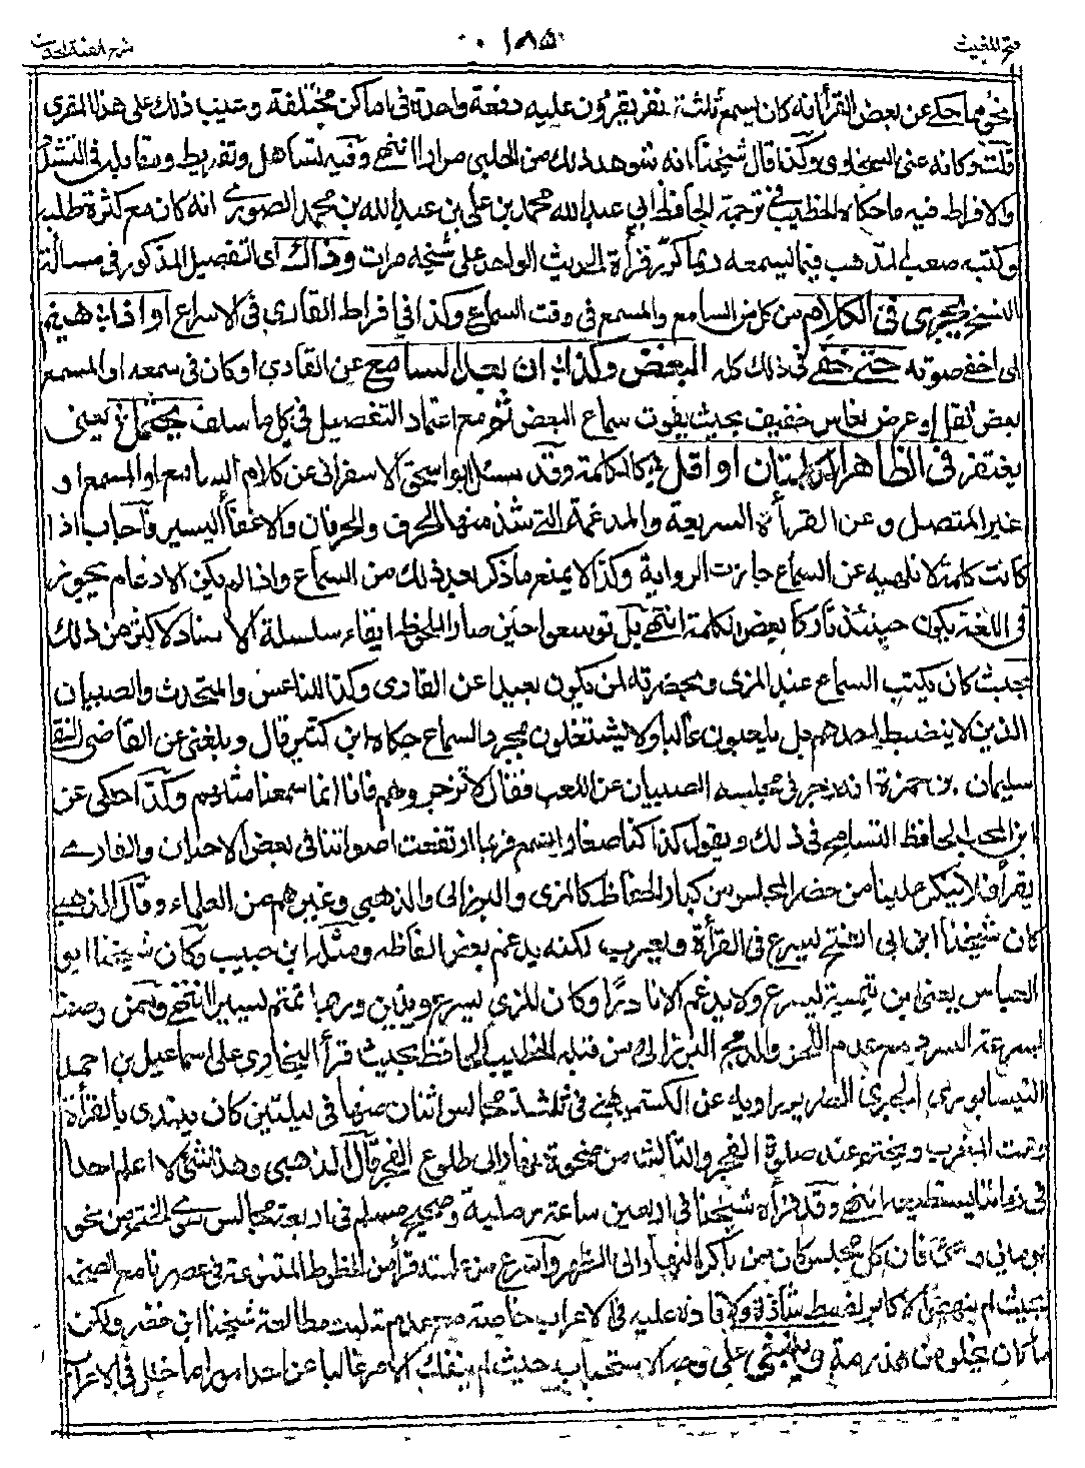 فتح المغيث ١٨٥ شرح الفية الحديث
نحو مما حكے عن بعض القرأ انه كان يسمع ثلثة نفر يقرؤن عليه دفعة واحدة في اماكن مختلفة وعيب ذلك على هذا المقرى
قلت وكانه عنى السخاوى وكذا قال شيخنا انه شوهد ذلك من الحلبي مرارا انتهے وفيه لتساهل وتفريط ومقابله في التشدد
والافراط فيه ما حكاه الخطيب في ترجمة الحافظ ابي عبد الله محمد بن علي بن عبد الله بن محمد الصورے انه كان مع كثرة طلبه
وكتبه صعب المذهب فيما يسمعه ربما كرر قرأة الحديث الواحد على شيخه مرات وذاك اى التفصيل المذكور في مسألة
النسخ يجرى في الكلام من كل من السامع والمسمع في وقت السماع وكذا في افراط القارى في الاسراع او اذا هينم
اى اخفے صوته حتے خفے في ذلك كله البعض وكذا ان بعد السامع عن القارى او كان في سمعه او المسمع
بعض ثقل او عرض نعاس خفيف بحيث يفوت سماع البعض ثم مع اعتماد التفصيل في كل ما سلف يحتمل يعنى
يغتفر في الظاهر الكلمتان او اقل كالكلمة وقد سئل ابو اسحق الاسفرائى عن كلام السامع او المسمع او
غير المتصل وعن القرأة السريعة والمدغمة التے شذ منها الحرف والحرفان والاغفاء اليسير فأجاب اذا
كانت كلمة لا تلهيه عن السماع جازت الرواية وكذا لا يمنع ما ذكر بعد ذلك من السماع واذا لم يكن الادغام يجوز
في اللغة يكون حينئذ تاركا بعض الكلمة انتهے بل توسعوا حين صار الملحوظ ابقاء سلسلة الاسناد لاكثر من ذلك
بحيث كان يكتب السماع عند المزى وبحضرته لمن يكون بعيدا عن القارى وكذا للناعس والمتحدث والصبيان
الذين لا ينضبط احدهم بل يلعبون غالبا ولا يشتغلون بمجرد السماع حكاه ابن كثير قال وبلغنى عن القاضى التقى
سليمان بن حمزة انه زجر في مجلسه الصبيان عن اللعب فقال لا تزجروهم فانا انما سمعنا مثلهم وكذا حكى عن
ابن المحب الحافظ التسامح في ذلك ويقول كذا كنا صغارا نسمع فربما ارتفعت اصواتنا في بعض الاحيان والقارے
يقرأ فلا ينكر علينا من حضر المجلس من كبار الحفاظ كالمزى والبرزالى والذهبي وغيرهم من العلماء وقال الذهبے
كان شيخنا ابن ابى الفتح يسرع في القرأة ويعرب لكنه يدغم بعض الفاظه ومثله ابن حبيب وكان شيخنا ابو
العباس يعنى ابن تيمية يسرع ولا يدغم الا نادرا وكان المزى يسرع ويبين وربما تمتم يسيرا انتهے وممن وصف
بسرعة السرد مع عدم اللحن والدمج البرزالى ومن قبله الخطيب الحافظ بحيث قرأ البخارى على اسماعيل بن احمد
النيسابورى الحيرى الضرير براويه عن الكشميهنے في ثلثة مجالس اثنان منها في ليلتين كان يبتدى بالقرأة
وقت المغرب ويختم عند صلوة الفجر والثالث من ضحوة نهار الى طلوع الفجر قال الذهبي وهذا شئ لا اعلم احدا
في زماننا يستطيعه انتهے وقد قرأه شيخنا في اربعين ساعة رملية وصحيح مسلم في اربعة مجالس سوى الختم من نحو
يومانى وشئ فان كل مجلس كان من باكر النهار الى الظهر وأسرع من علمته قرأ من الخطوط المتنوعة في عصرنا مع الصحة
بحيث لم ينهض الاكابر لضبط شاذة ولا فاذة عليه في الاعراب خاصة مع عدم تبييت مطالعة شيخنا ابن خضر ولكن
ما كان يخلو من هذرمة وينبغى على وجه الاستحباب حيث لم ينفك الامر غالبا عن احد امور اما خلل في الاعراب